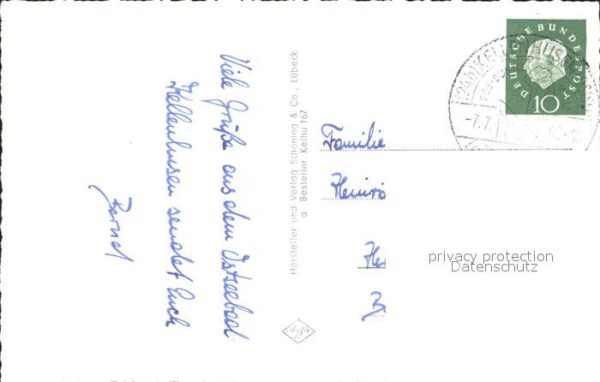 Viele Grüße aus dem Ostseebad
Kellenhusen sendet Euch
Bernd
Hersteller und Verlag Schöning & Co., Lübeck
Bestellnr. Kelhu 167
DEUTSCHE BUNDESPOST
10
-7.7.
Familie
Heinri
privacy protection
Datenschutz